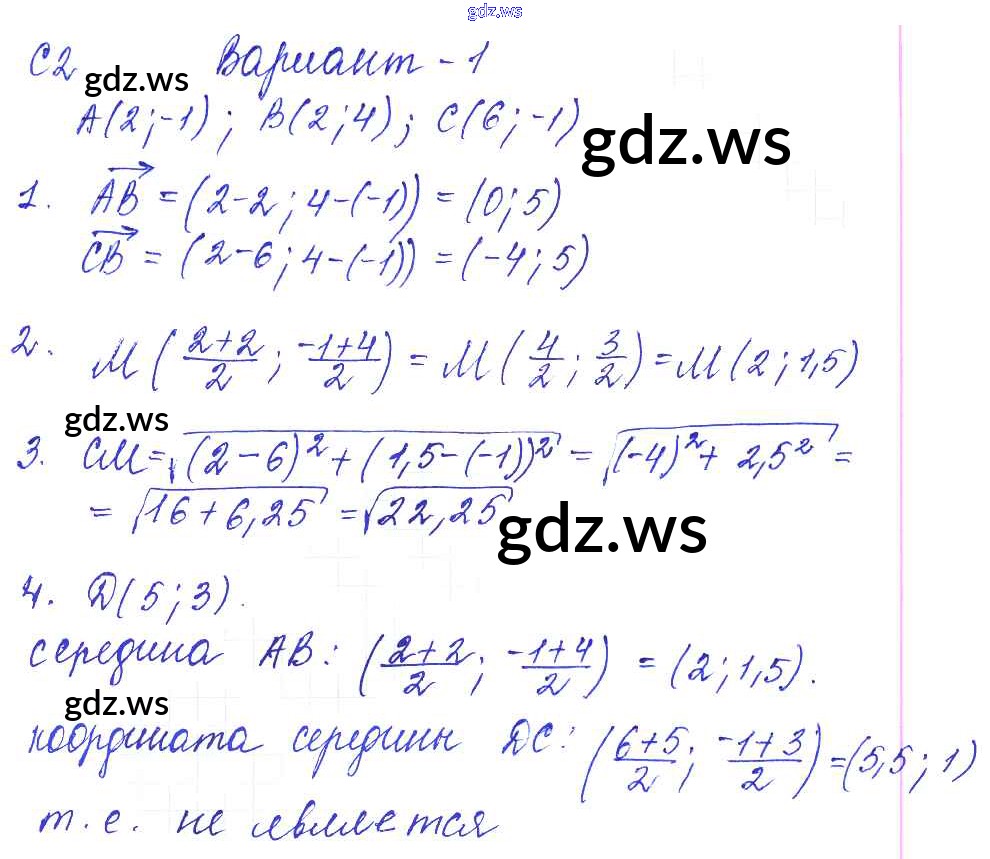 gdz.ws
С2 Вариант - 1
gdz.ws
А(2;-1); В(2;4); С(6;-1)
gdz.ws
1. АВ = (2-2; 4-(-1)) = (0; 5)
СВ = (2-6; 4-(-1)) = (-4; 5)
2. М ( (2+2)/2 ; (-1+4)/2 ) = М ( 4/2 ; 3/2 ) = М (2; 1,5)
gdz.ws
3. СМ = √((2-6)² + (1,5-(-1))²) = √((-4)² + 2,5²) =
= √(16+6,25) = √22,25
gdz.ws
4. D(5;3).
середина АВ: ( (2+2)/2 ; (-1+4)/2 ) = (2; 1,5).
gdz.ws
координата середины DC: ( (6+5)/2 ; (-1+3)/2 ) = (5,5; 1)
т.е. не является